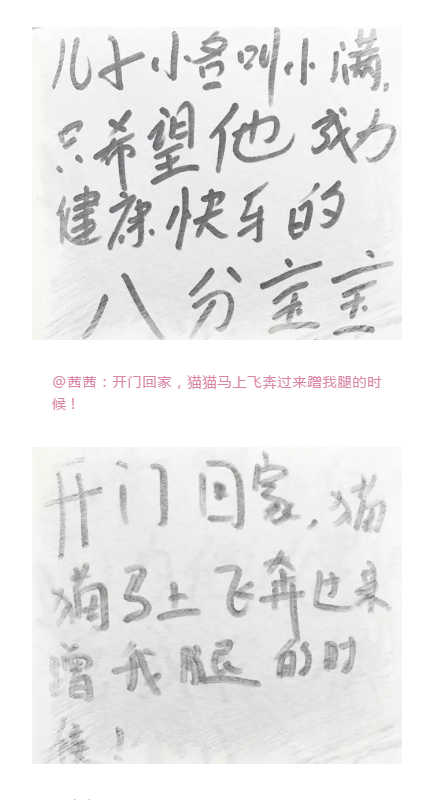 儿子小名叫小满,
只希望他成为
健康快乐的
八分宝宝
@茜茜：开门回家，猫猫马上飞奔过来蹭我腿的时
候！
开门回家,猫
猫马上飞奔过来
蹭我腿的时
候!